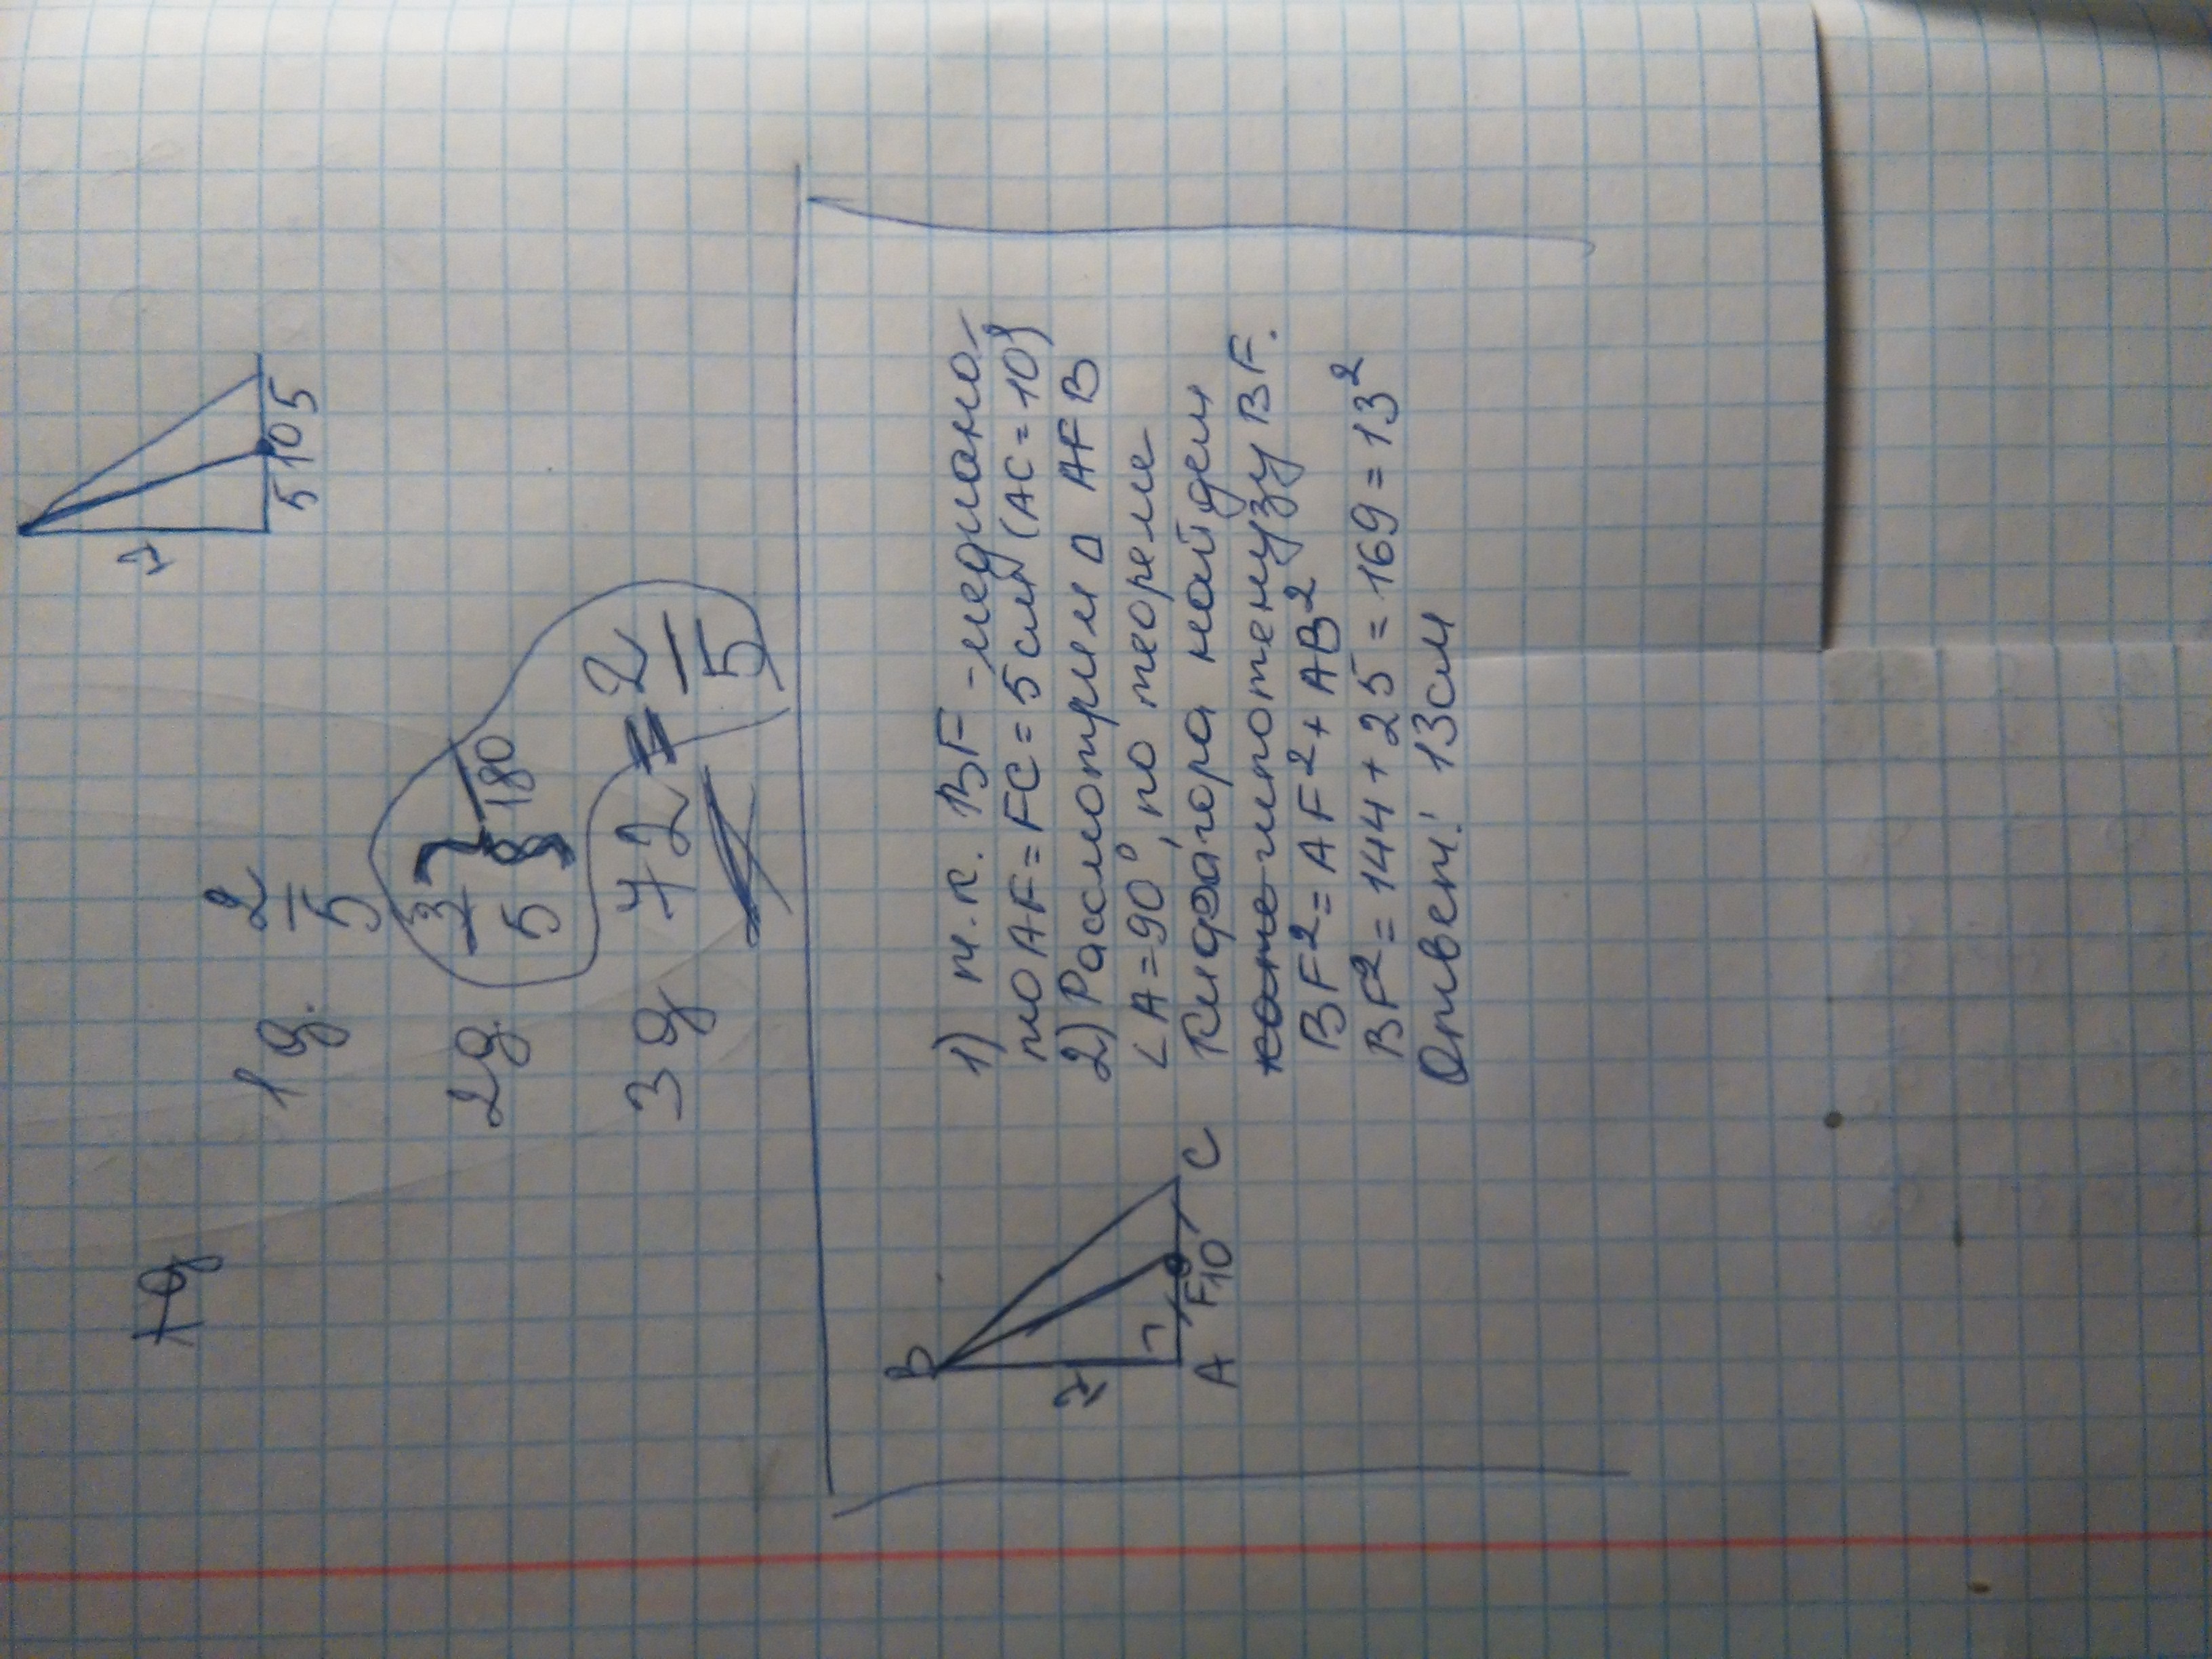 12
5 10 5
1 д. 2/5
2 д. 3/5 180
3 д 72 = 2/5
B
12
A F 10 C
1) т.к. BF - медиана
то AF = FC = 5 см (AC = 10)
2) Рассмотрим △ AFB
∠A = 90°, по теореме
Пифагора найдем
гипотенузу BF.
BF² = AF² + AB²
BF² = 144 + 25 = 169 = 13²
Ответ: 13 см